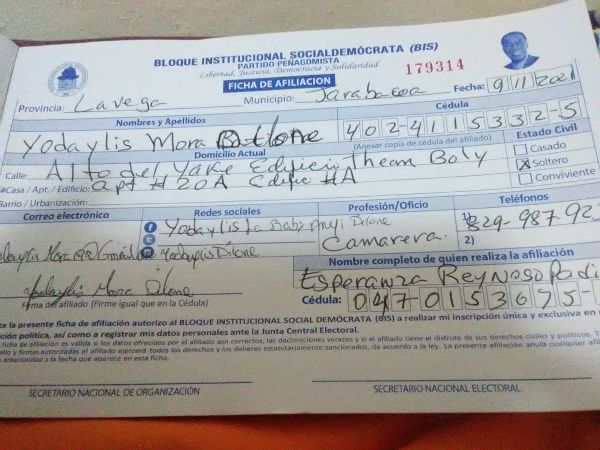 BLOQUE INSTITUCIONAL SOCIALDEMÓCRATA (BIS)
PARTIDO PEÑAGOMISTA
Libertad, Justicia, Democracia y Solidaridad
FICHA DE AFILIACION
179314
Provincia: La vega Municipio: Jarabacoa Fecha: 9/11/2021
Nombres y Apellidos Cédula
Yodaylis Mora 402-4115332-5
(Anexar copia de cédula del afiliado)
Domicilio Actual Estado Civil
Calle: Alto del Yake Edificio Theam Boly
Casado
Soltero
Conviviente
#Casa / Apt. / Edificio: apt # 20A Edific #A
Barrio / Urbanización:
Correo electrónico Redes sociales Profesión/Oficio Teléfonos
Yodaylis La Baby Dilone
Camarera. 1) 829-987-923
2)
Yodaylis Dilone
Nombre completo de quien realiza la afiliación
Yodaylis Mora Dilone Esperanza Reynoso
Firma del afiliado (Firme igual que en la Cédula) Cédula: 047-0153675-
te la presente ficha de afiliación autorizo al BLOQUE INSTITUCIONAL SOCIAL DEMÓCRATA (BIS) a realizar mi inscripción única y exclusiva en
ción política, así como a registrar mis datos personales ante la Junta Central Electoral.
de afiliación es valida si los datos ofrecidos por el afiliado son correctos, las declaraciones veraces y si el afiliado tiene el disfrute de sus derechos civiles y políticos.
ello y firmas autorizadas el afiliado ejercerá todos los derechos y los deberes estatutariamente sancionados, de acuerdo a la ley. La presente afiliación anula cualquier afil
anterioridad a la fecha que aparece en esta ficha.
SECRETARIO NACIONAL DE ORGANIZACIÓN SECRETARIO NACIONAL ELECTORAL